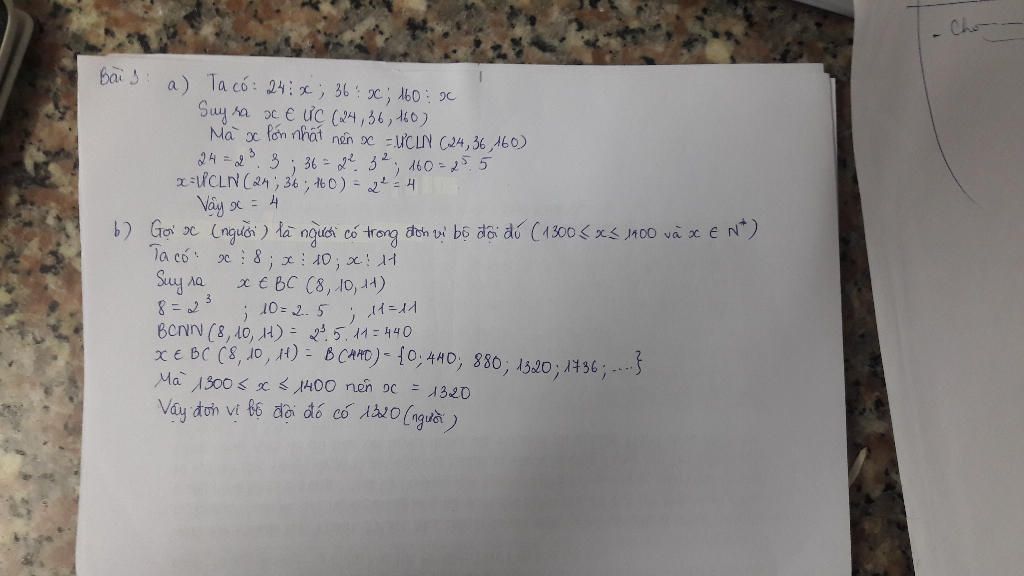 - Cho
Bài 3: a) Ta có: 24⋮x; 36⋮x; 160⋮x
Suy ra x ∈ ƯC (24, 36, 160)
Mà x lớn nhất nên x = ƯCLN (24, 36, 160)
24 = 2³. 3 ; 36 = 2². 3² ; 160 = 2⁵. 5
x=ƯCLN (24; 36; 160) = 2² = 4
Vậy x = 4
b) Gọi x (người) là người có trong đơn vị bộ đội đó (1300 ≤ x ≤ 1400 và x ∈ N*)
Ta có: x⋮8; x⋮10; x⋮11
Suy ra x ∈ BC (8, 10, 11)
8 = 2³ ; 10 = 2. 5 ; 11 = 11
BCNN (8, 10, 11) = 2³. 5. 11 = 440
x ∈ BC (8, 10, 11) = B(440) = {0; 440; 880; 1320; 1736; ....}
Mà 1300 ≤ x ≤ 1400 nên x = 1320
Vậy đơn vị bộ đội đó có 1320 (người)